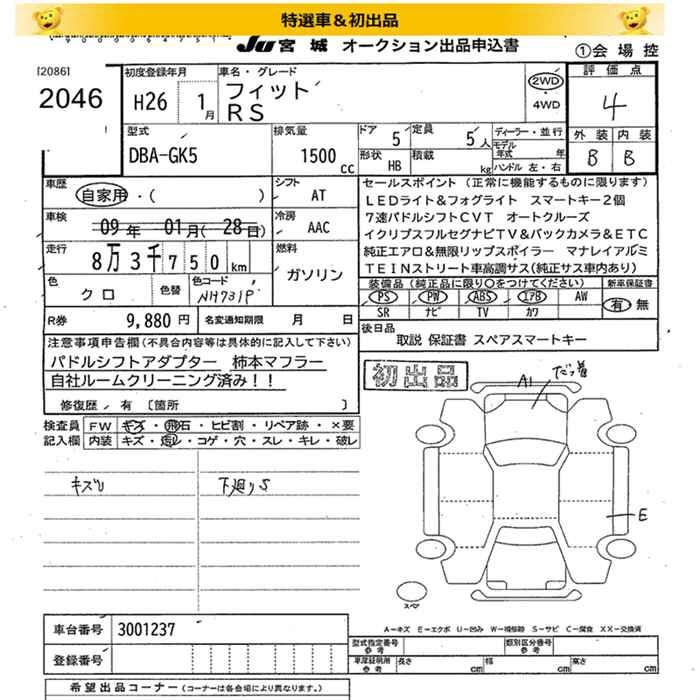 特選車＆初出品
JU 宮城 オークション出品申込書
①会場控
[2086]
2046
初度登録年月
H26 1月
車名・グレード
フィット
RS
2WD
・4WD
評価点
4
外装 内装
B B
型式
DBA-GK5
排気量
1500cc
ドア 5
定員 5人
形状 HB
積載 kg
ディーラー・並行
モデル年式 年
ハンドル 左・右
車歴
自家用・( )
シフト
AT
車検
09年 01月(28日)
冷房
AAC
走行
8万3千750km
燃料
ガソリン
色
クロ
色替
色コード
NH731P
R券 9,880円
名変通知期限 月 日
セールスポイント (正常に機能するものに限ります)
LEDライト＆フォグライト スマートキー2個
7速パドルシフトCVT オートクルーズ
イクリプスフルセグナビTV＆バックカメラ＆ETC
純正エアロ＆無限リップスポイラー マナレイアルミ
TEINストリート車高調サス(純正サス車内あり)
装備品 (純正品に限り○をつけてください)
新車保証書
PS PW ABS エアB AW
SR ナビ TV カワ
有・無
後日品
取説 保証書 スペアスマートキー
注意事項申告欄 (不具合内容等は具体的に記入して下さい)
パドルシフトアダプター 柿本マフラー
自社ルームクリーニング済み！！
修復歴・有 〔箇所 〕
初出品
検査員
記入欄
FW キズ・飛石・ヒビ割・リペア跡・×要
内装 キズ・汚レ・コゲ・穴・スレ・キレ・破レ
キズU
下廻りS
A1
E
スペア
A−キズ E−エクボ U−凹み W−補修跡 S−サビ C−腐食 XX−交換済
車台番号 3001237
登録番号
型式指定番号 参考
類別区分番号 参考
車庫証明用 参考 長さ cm 幅 cm 高さ cm
希望出品コーナー (コーナーは各会場により異なります。)